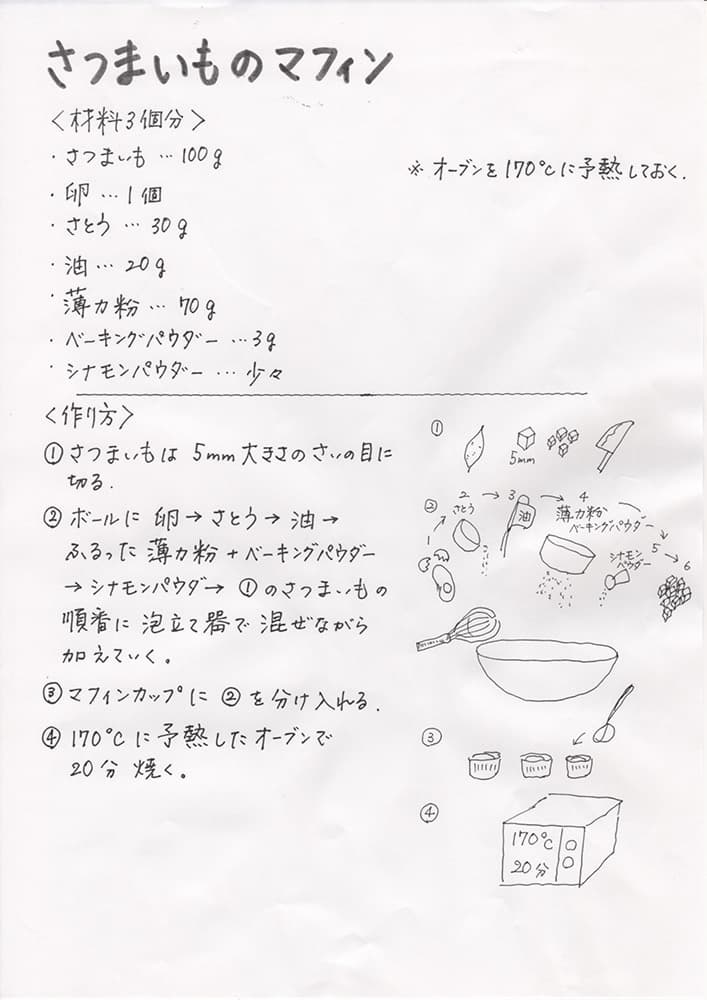 さつまいものマフィン
〈材料3個分〉
・さつまいも…100g
※オーブンを170℃に予熱しておく.
・卵…1個
・さとう…30g
・油…20g
・薄力粉…70g
・ベーキングパウダー…3g
・シナモンパウダー…少々
〈作り方〉
①さつまいもは 5mm大きさのさいの目に
切る.
②ボールに 卵→さとう→油→
ふるった薄力粉+ベーキングパウダー
→シナモンパウダ→①のさつまいもの
順番に泡立て器で混ぜながら
加えていく。
③マフィンカップに②を分け入れる.
④170℃に予熱したオーブンで
20分焼く。
①
5mm
②
1→2→3→4→5→6
さとう
油
薄力粉
ベーキングパウダー
シナモン
パウダー
③
④
170℃
20分